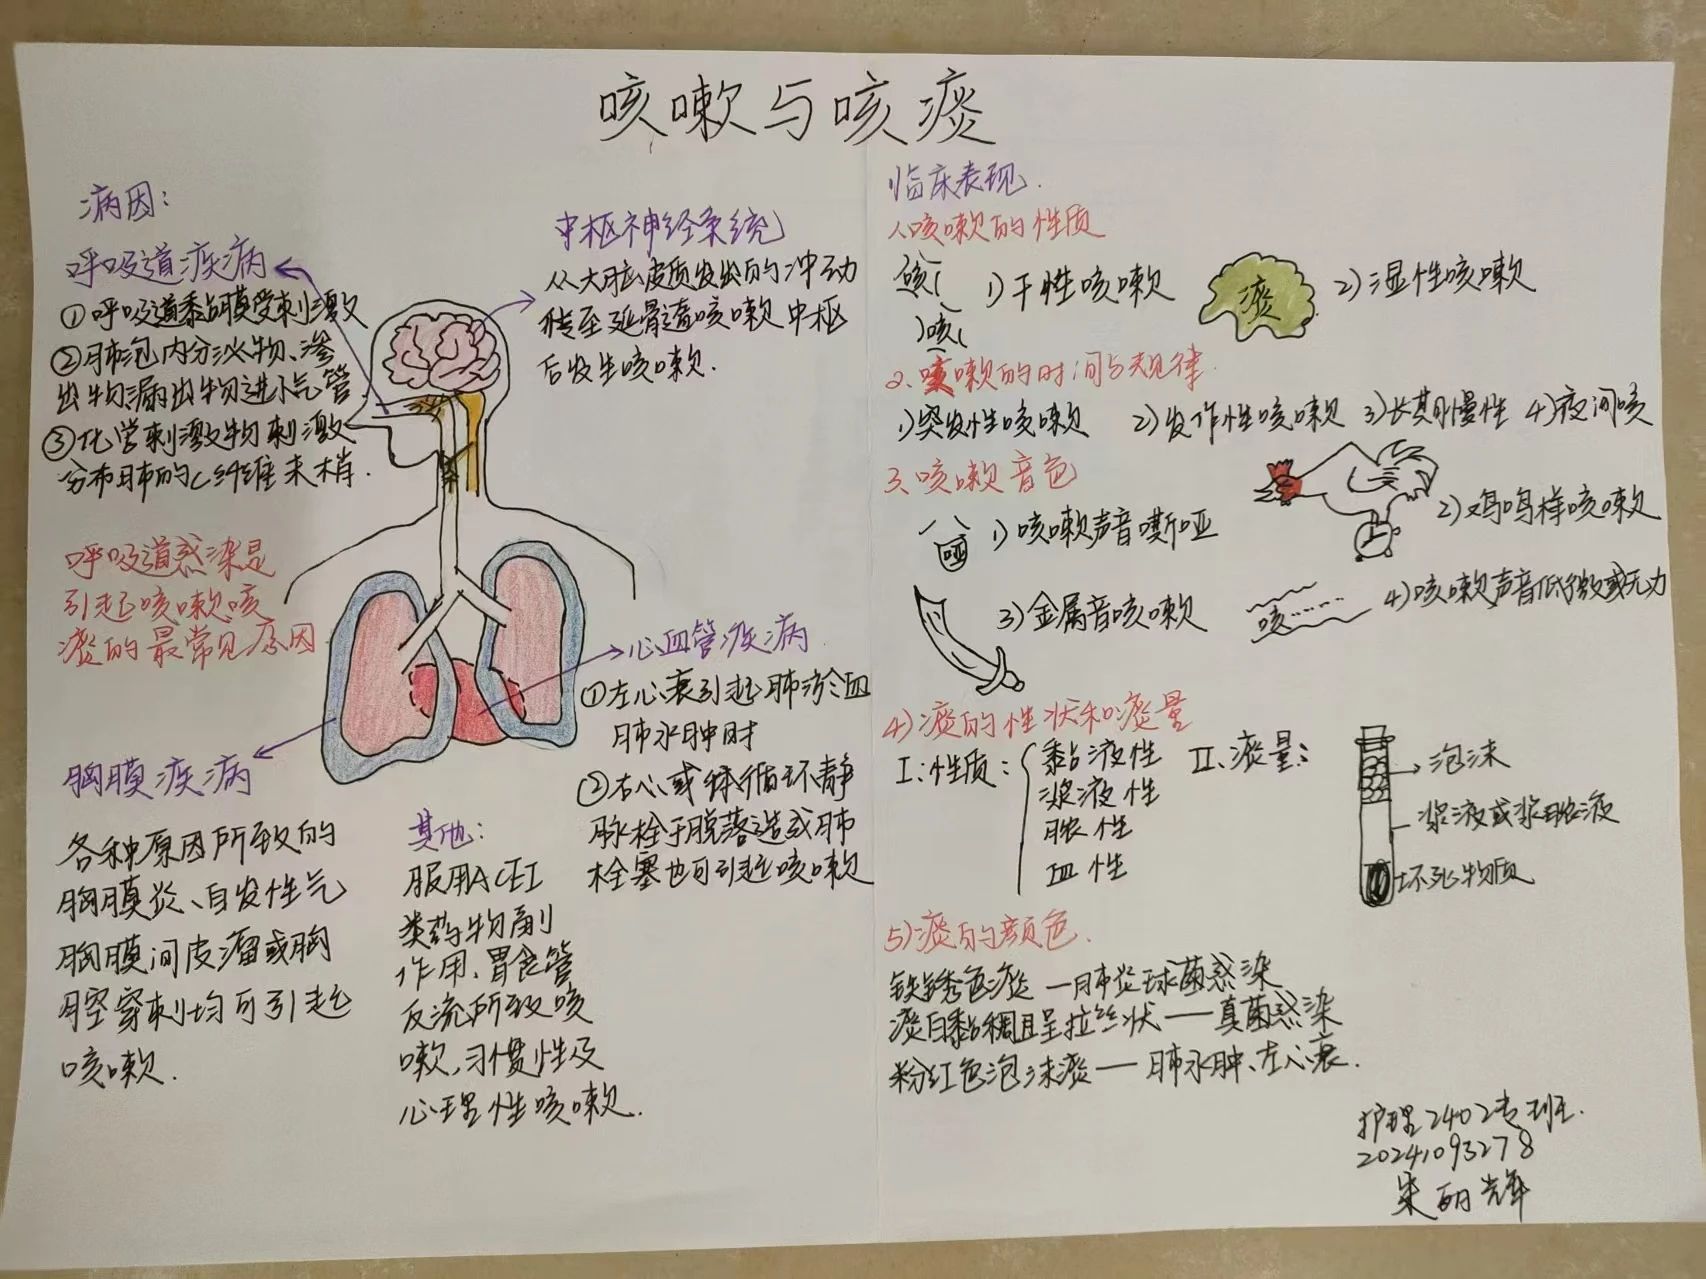 咳嗽与咳痰
病因：
呼吸道疾病
①呼吸道黏膜受刺激
②肺泡内分泌物、渗
出物漏出物进小气管
③化学刺激物刺激
分布肺的C纤维末梢.
中枢神经系统
从大脑皮质发出的冲动
传至延髓造咳嗽中枢
后发生咳嗽.
呼吸道感染是
引起咳嗽咳
痰的最常见原因
心血管疾病
①左心衰引起肺淤血
肺水肿时
②右心或体循环静
脉栓子脱落造成肺
栓塞也可引起咳嗽
胸膜疾病
各种原因所致的
胸膜炎、自发性气
胸膜间皮瘤或胸
腔穿刺均可引起
咳嗽.
其他：
服用ACEI
类药物副
作用、胃食管
反流所致咳
嗽,习惯性及
心理性咳嗽.
临床表现.
1.咳嗽的性质
咳(
咳(
1)干性咳嗽
痰
2)湿性咳嗽
2、咳嗽的时间与规律.
1)突发性咳嗽 2)发作性咳嗽 3)长期慢性 4)夜间咳
3、咳嗽音色
哑
1)咳嗽声音嘶哑
2)鸡鸣样咳嗽
3)金属音咳嗽
咳……
4)咳嗽声音低微或无力
4)痰的性状和痰量
Ⅰ:性质：
黏液性
浆液性
脓性
血性
Ⅱ.痰量：
泡沫
浆液或浆脓液
坏死物质
5)痰的颜色.
铁锈色痰—肺炎球菌感染
痰白黏稠且呈拉丝状—真菌感染
粉红色泡沫痰—肺水肿、左心衰.
护理2402专班.
20241093278